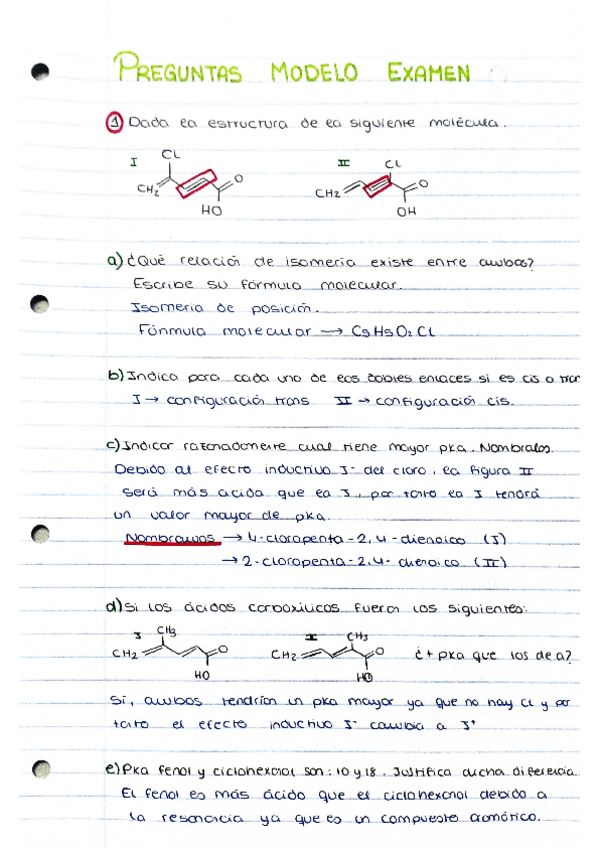 PREGUNTAS MODELO EXAMEN
1 Dada la estructura de la siguiente molécula.
I CL CH2 O HO
II CL CH2 O OH
a) ¿Qué relación de isomería existe entre ambos?
Escribe su fórmula molecular.
Isomería de posición.
Fórmula molecular → C5H5O2CL
b) Indica para cada uno de los dobles enlaces si es cis o tran
I → configuración trans II → configuración cis.
c) Indicar razonadamente cual tiene mayor pka. Nombralos.
Debido al efecto inductivo I- del cloro, la figura II
será más ácida que la I, por tanto la I tendrá
un valor mayor de pka.
Nombramos → 4-cloropenta-2,4-dienoico (I)
→ 2-cloropenta-2,4-dienoico (II)
d) Si los ácidos carboxílicos fueran los siguientes:
I CH3 CH2 O HO
II CH3 CH2 O HO
¿+ pka que los de a?
Sí, ambos tendrían un pka mayor ya que no hay CL y por
tanto el efecto inductivo I- cambia a I+
e) Pka fenol y ciclohexanol son: 10 y 18. Justifica dicha diferencia
El fenol es más ácido que el ciclohexanol debido a
la resonancia ya que es un compuesto aromático.